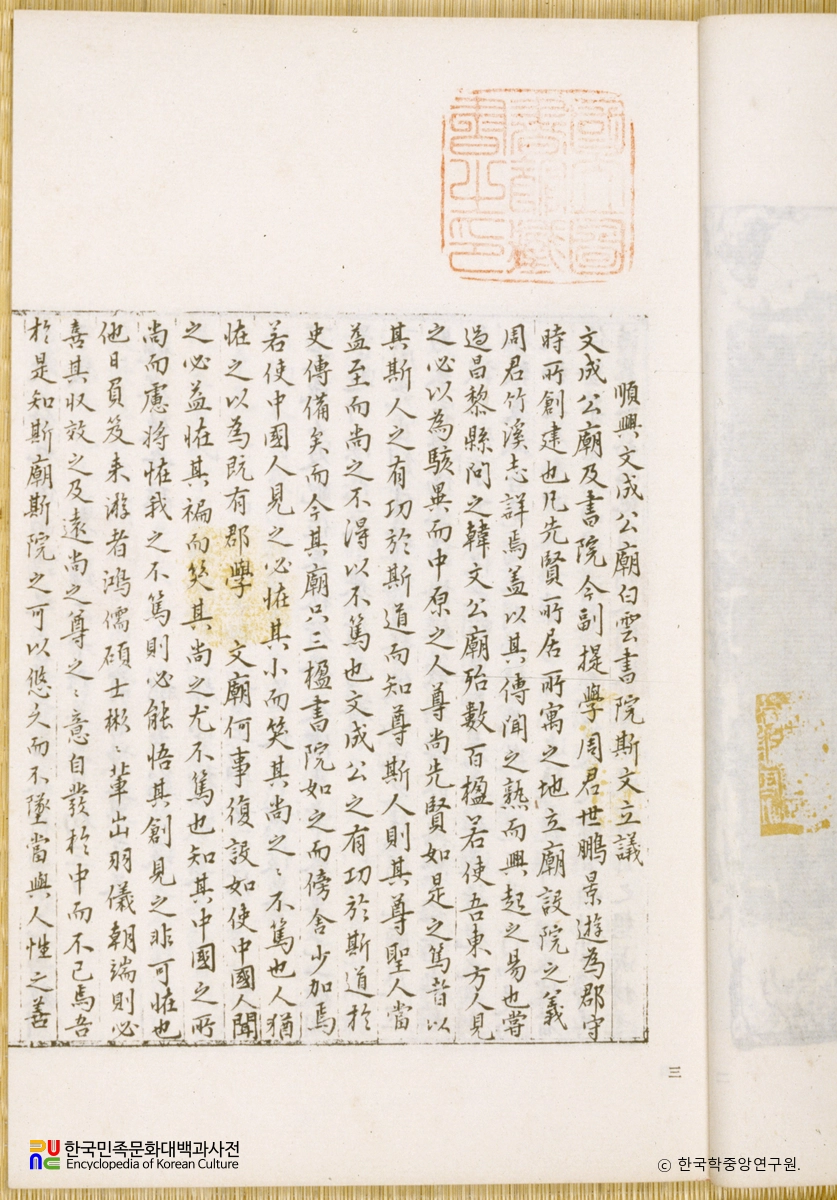 順興文成公廟白雲書院斯文立議
文成公廟及書院今副提學周君世鵬景遊為郡守
時所創建也凡先賢所居所寓之地立廟設院之義
周君竹溪志詳焉盖以其傳聞之熟而興起之易也嘗
過昌黎縣問之韓文公廟殆數百楹若使吾東方人見
之必以為駭異而中原之人尊尚先賢如是之篤昔以
其斯人之有功於斯道而知尊斯人則其尊聖人當
益至而尚之不得以不篤也文成公之有功於斯道於
史傳備矣而今其廟只三楹書院如之而傍舍少加焉
若使中國人見之必恠其小而笑其尚之〻不篤也人猶
恠之以為既有郡學 文廟何事復設如使中國人聞
之必益恠其褊而笑其尚之尤不篤也知其中國之所
尚而慮將恠我之不篤則必能悟其創見之非可恠也
他日負笈来游者鴻儒碩士彬〻輩出羽儀朝端則必
喜其收效之及遠尚之尊之〻意自發於中而不已焉吾
於是知斯廟斯院之可以悠久而不墜當與人性之善
三
한국민족문화대백과사전
Encyclopedia of Korean Culture
© 한국학중앙연구원.